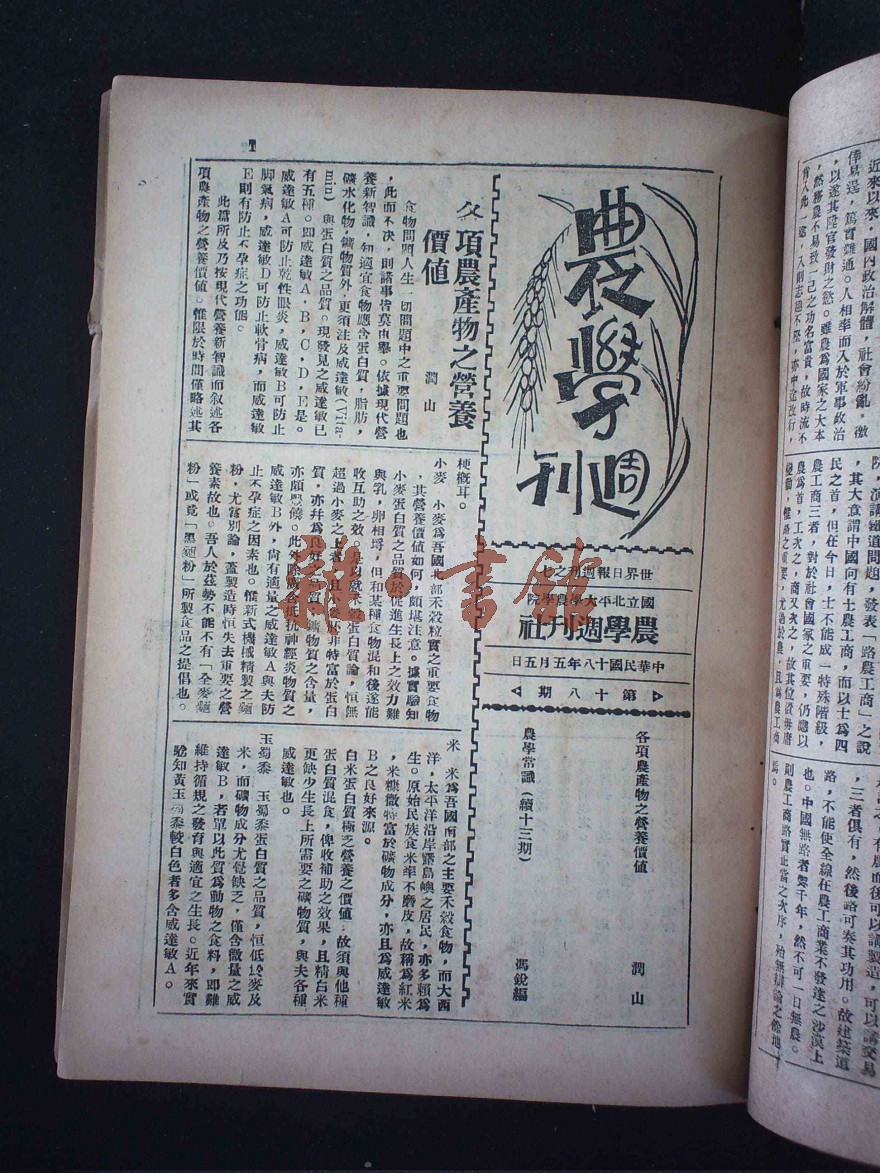 農學
週刊
世界日報週刊之七
國立北平大學農學院
農學週刊社
中華民國十八年五月五日
第十八期
各項農產物之營養價値 潤山
農學常識(續十三期) 馮銳編
各項農產物之營養
價値 潤山
食物問題人生一切問題中之重要問題也
,此而不决,則諸事皆莫由舉。依據現代營
養新智識,知適宜食物應含蛋白質,脂肪,
礦水化物,鑛物質外,更須注及威達敏(Vita-
min)與蛋白質之品質。現發見之威達敏已
有五種。即威達敏A,B,C,D,E是。
威達敏A可防止乾性眼炎,威達敏B可防止
脚氣病,威達敏D可防止軟骨病,而威達敏
E則有防止不孕症之功能。
此篇所及乃按現代營養新智識而叙述各
項農產物之營養價値。惟限於時間僅略述其
梗概耳。
小麥 小麥爲吾國北部禾穀粒實之重要食物
,其營養價値如何,頗堪注意。據實驗知
小麥蛋白質之品質於促進生長上之效力難
與乳,卵相埒,但和某種食物混和後遂能
收互助之效。是以就禾穀蛋白質論,恒無
超過小麥之上者,且小麥
質,亦幷爲良好之品質。鑛物質之含量,
亦頗豐饒。此外除
威達敏B外,尙有適量之威達敏A與夫防
止不孕症之因素也。惟新式機械精製之麵
粉,尤當別論,蓋製造時恒失去重要之營
養素故也。吾人於茲勢不能不有「全麥麵
粉」或竟「黑麵粉」所製食品之提倡也。
米 米爲吾國南部之主要禾穀食物,而大西
洋,太平洋沿岸曁島嶼之居民,亦多賴爲
生。原始民族食米率不磨皮,故稱爲紅米
,米糠微特富於礦物成分,亦且爲威達敏
B之良好來源。
白米蛋白質極乏營養之價値,故須與他種
蛋白質混食,俾收補助之效果,且精白米
更缺少生長上所需要之礦物質,與夫各種
威達敏也。
玉蜀黍 玉蜀黍蛋白質之品質,恒低於麥及
米,而礦物成分尤覺缺乏,僅含微量之威
達敏B,若單以此質爲動物之食料,即難
維持循規之發育與適宜之生長。近年來實
驗知黃玉蜀黍較白色者多含威達敏A。
近來以來,國內政治解體,社會紛亂,徼
倖易逞,篤實難通。人相率而入於軍事政治
,以遂其陞官發財之慾。雖農爲國家之大本
,然務農不易致一己之功名富貴,故時流不
院,演講鐵道問題,發表「路農工商」之說
,其大意謂中國向有士農工商,而以士爲四
民之首,但在今日,士不能成一特殊階級,
農工商三者,對於社會國家之重要,仍應以
農爲首,工次之,商又次之,故其位置毋庸
變動,惟路之重要,尤過於農,且爲農工商
,三者俱有,然後路可奏其功用。故建築道
路,不能使全線在農工商業不發達之沙漠上
也。中國無路者數千年,然不可一日無農。
則農工商路實正當之次序,殆無辯論之餘地
焉。
雜·書館